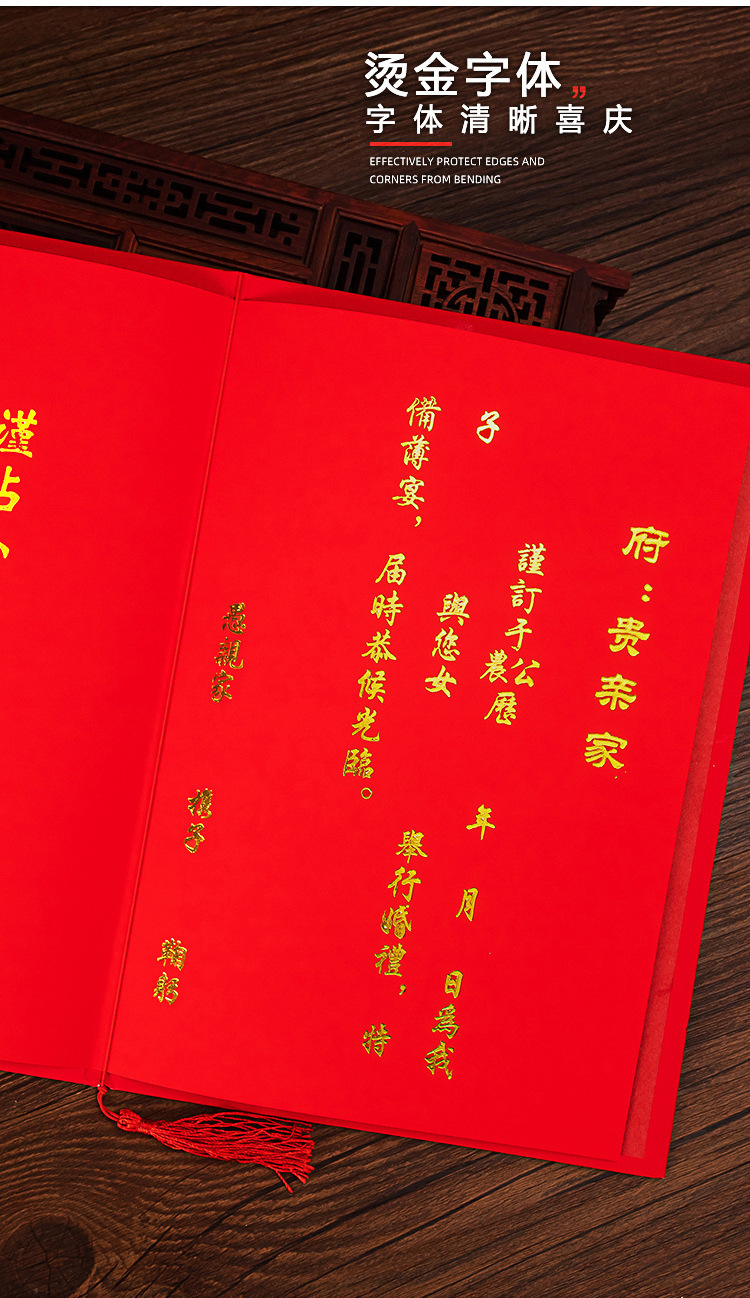 烫金字体
字体清晰喜庆
EFFECTIVELY PROTECT EDGES AND
CORNERS FROM BENDING
府：贵亲家
謹訂于公農歷 年 月 日為我
子 與您女 舉行婚禮，特
備薄宴，届時恭候光臨。
愚親家 携子 鞠躬
謹